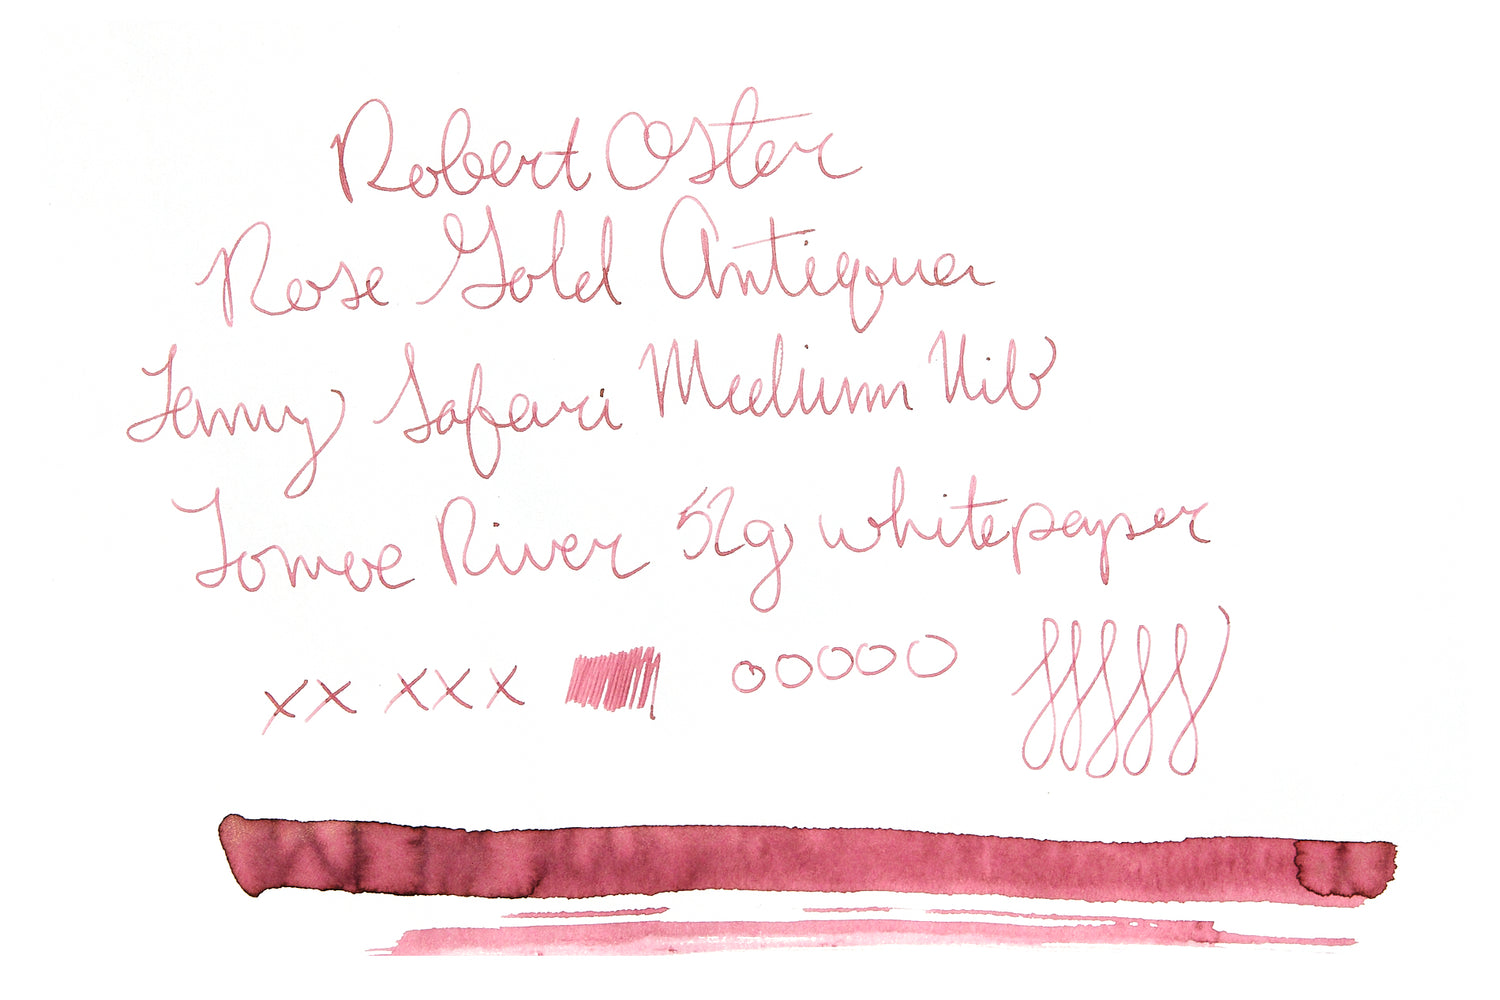 Robert Oster
Rose Gold Antiqua
Lamy Safari Medium Nib
Tomoe River 52g whitepaper
xx xxx ooooo